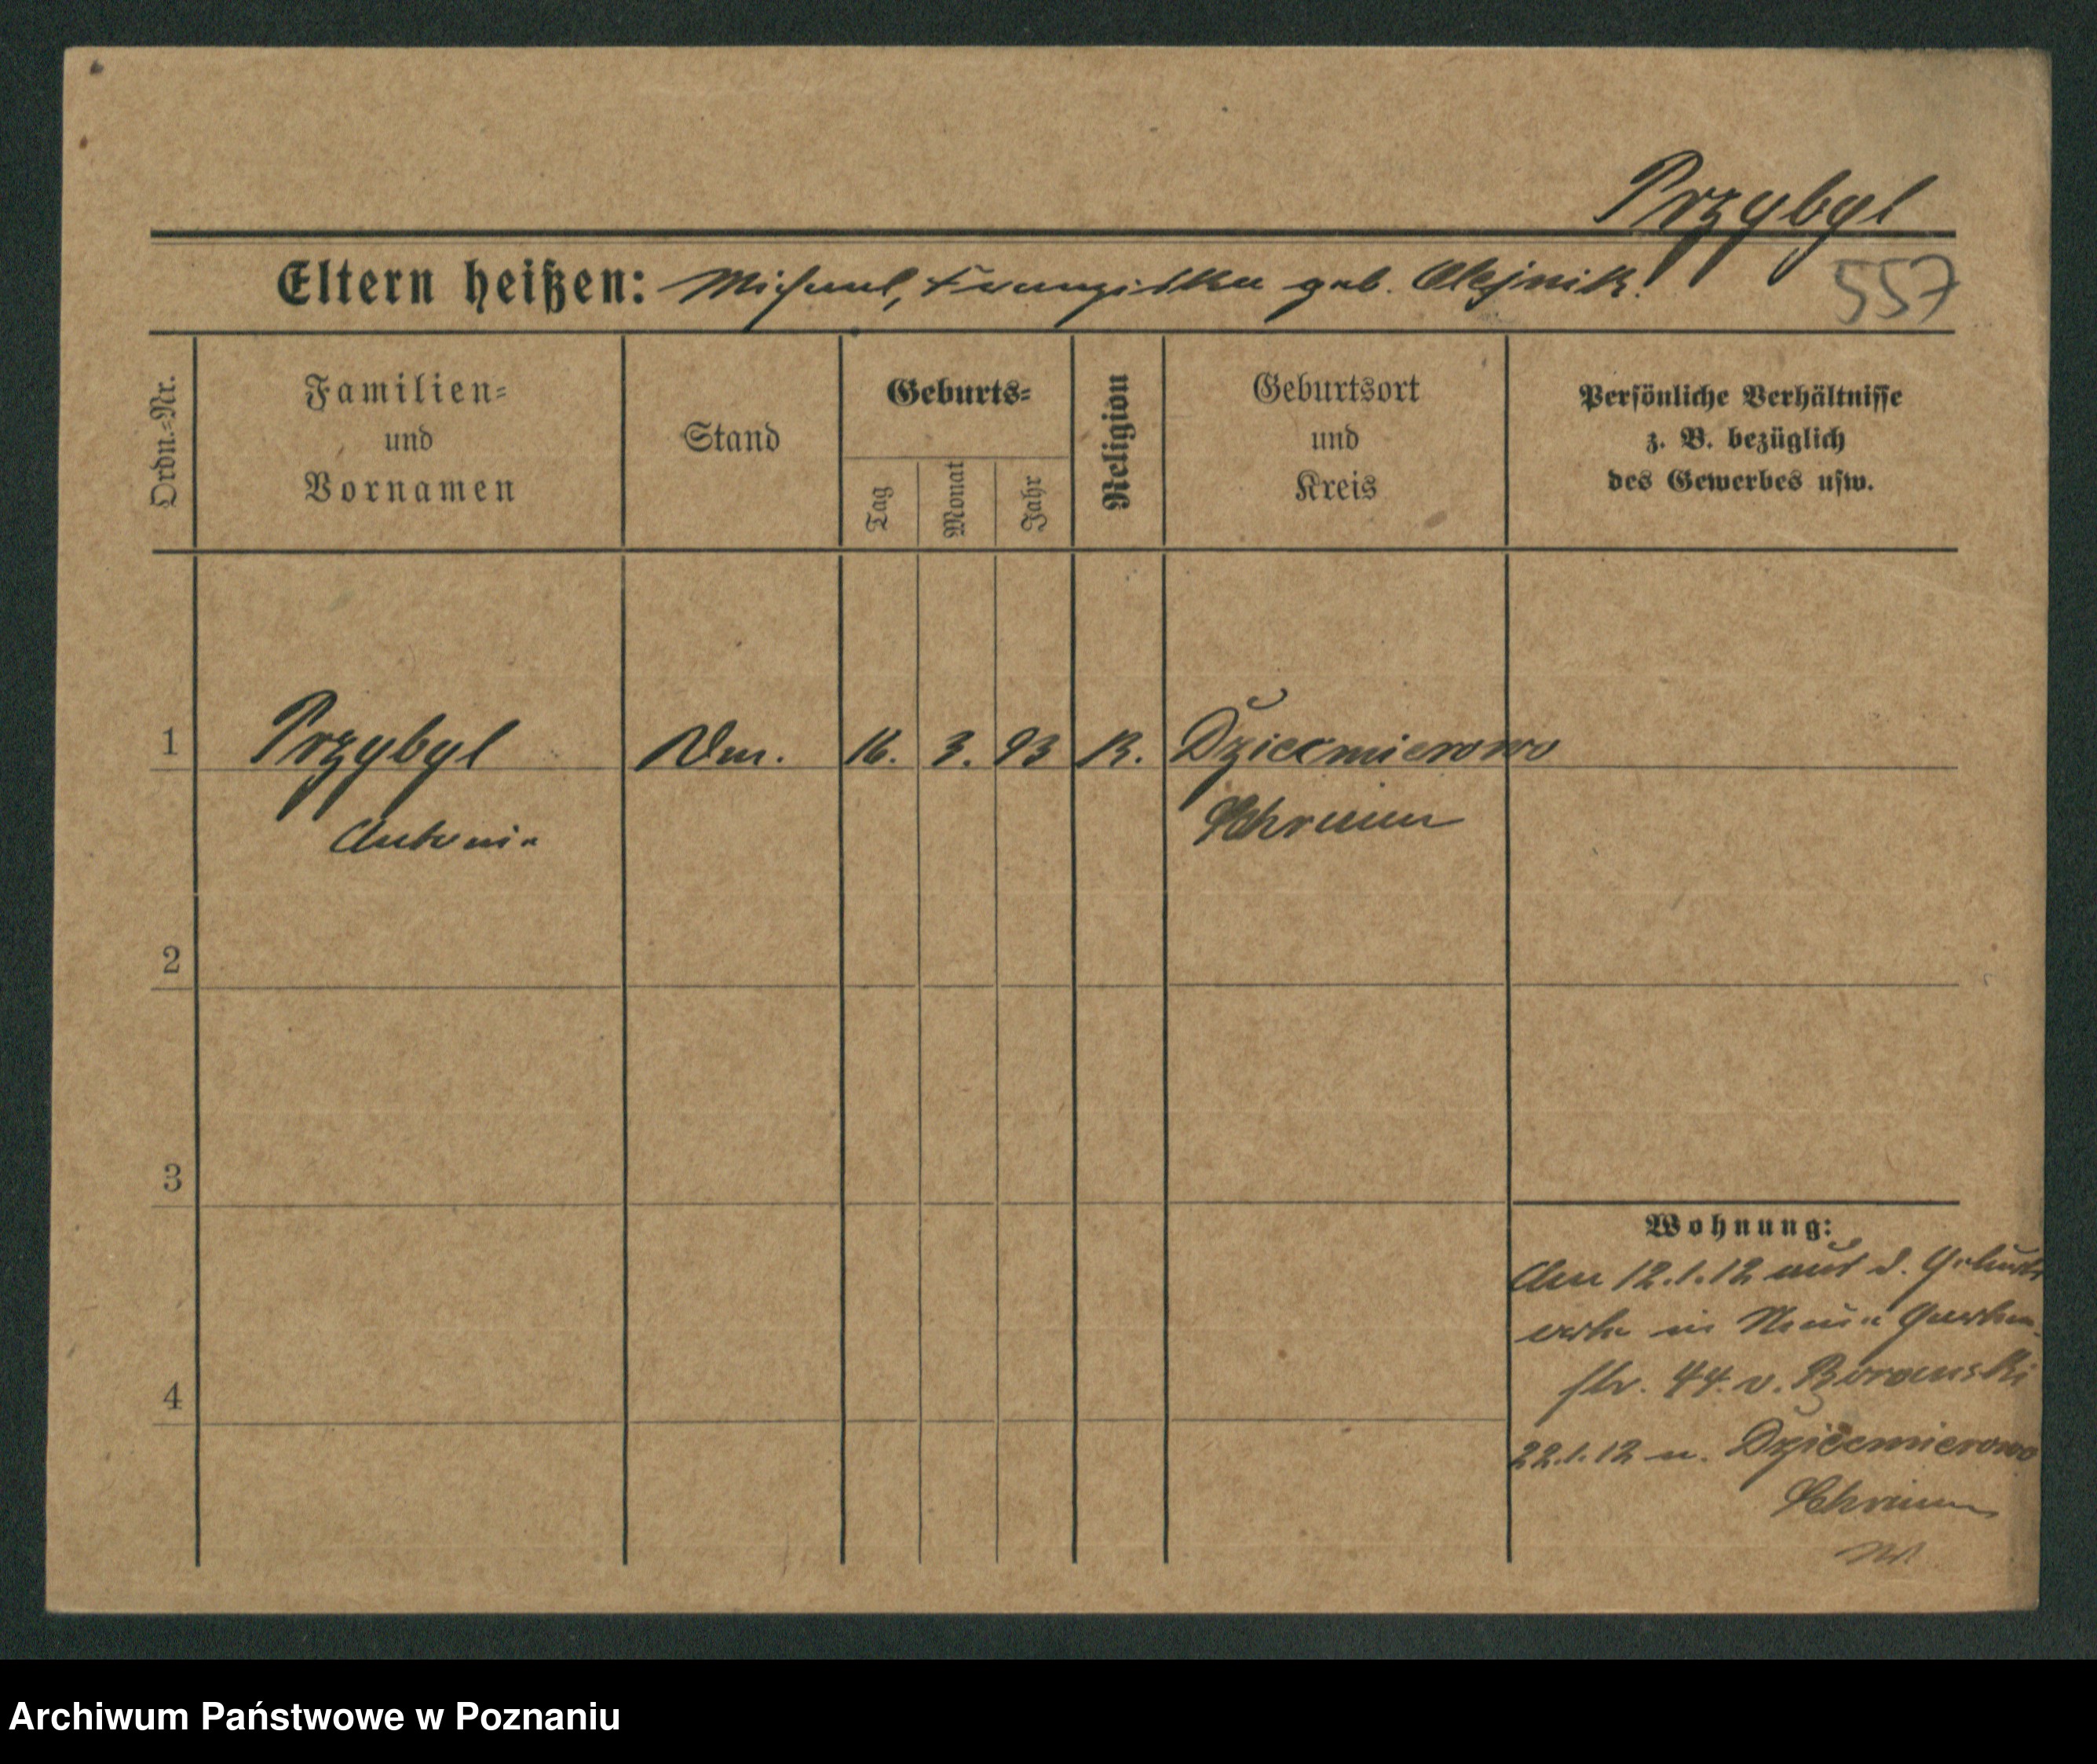 Przybyl
Eltern heißen: Michael, Franziska geb. Olejnik!
557
Ordn.=Nr.
Familien=
und
Vornamen
Stand
Geburts=
Tag
Monat
Jahr
Religion
Geburtsort
und
Kreis
Persönliche Verhältnisse
z. B. bezüglich
des Gewerbes usw.
1 Przybyl 16. 3. 93 K. Dziećmierowo
Antonie Schrimm
2
3
Wohnung:
12.1.12 aus d. Geburts
orte in Neue Garten-
str. 44. v. Borowski
4
22.1.12 n. Dziećmierowo
Schrimm
Archiwum Państwowe w Poznaniu